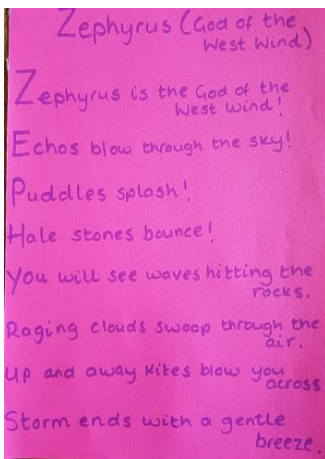 Zephyrus (God of the
West Wind)
Zephyrus is the God of the
West Wind!
Echos blow through the sky!
Puddles splash!
Hale stones bounce!
You will see waves hitting the
rocks.
Raging clouds swoop through the
air.
Up and away kites blow you
across
Storm ends with a gentle
breeze.